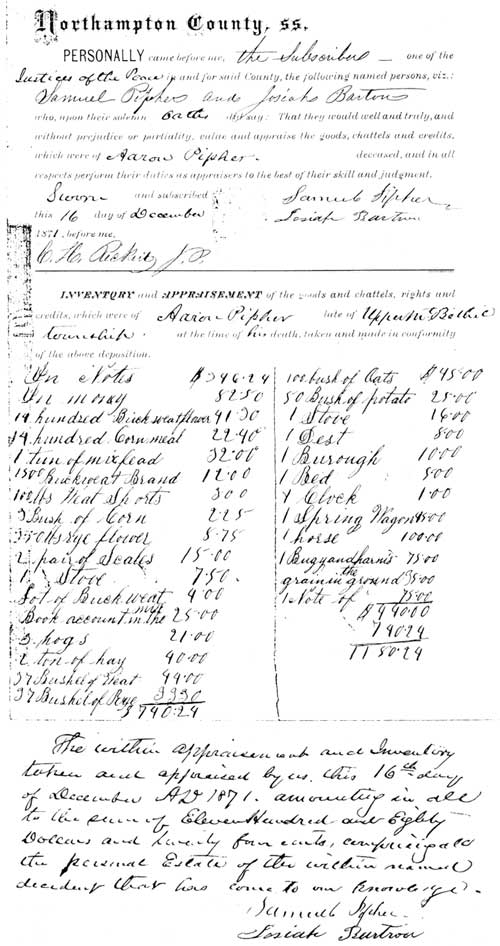 Northampton County, ss.
PERSONALLY came before me, the Subscriber — one of the
Justices of the Peace in and for said County, the following named persons, viz.:
Samuel Pipher and Josiah Bartron
who, upon their solemn Oaths did say: That they would well and truly, and
without prejudice or partiality, value and appraise the goods, chattels and credits,
which were of Aaron Pipher. deceased, and in all
respects perform their duties as appraisers to the best of their skill and judgment.
Sworn and subscribed
this 16 day of December
1871, before me,
Samuel Pipher
Josiah Bartron
C. H. J. P.
INVENTORY and APPRAISEMENT of the goods and chattels, rights and
credits, which were of Aaron Pipher late of Upper Mt Bethel
township. at the time of his death, taken and made in conformity
of the above deposition.
In Notes $346.24
In money 82 50
14 hundred Buckweat flower 41.30
14 hundred Corn meal 22.40
1 tun of mixfead 32.00
1500 Buckweat Brand 12.00
100 lbs Weat Sports 3 00
3 Bush of Corn 2 25
350 lbs rye flower 8.75
2 pair of Scales 15.00
1 Stove 7.50
Lot of Buckweat 4.00
Book account in the 25.00
3 hogs 21.00
2 ton of hay 40.00
37 Bushel of Weat 44.00
37 Bushel of Rye 33 30
$740.24
100 bush of Oats $45.00
50 Bush of potato 25.00
1 Stove 16.00
1 Sest 8.00
1 Burough 10.00
1 Bed 5.00
4 Clock 1.00
1 Spring Wagon 45.00
1 horse 100.00
1 Bugy and harnis 75.00
the
grain in ground 35.00
1 Note of 75.00
$440.00
740.24
1180.24
The within appraisement and Inventory
taken and appraised by us this 16th day
of December AD 1871. amounting in all
to the sum of Eleven Hundred and Eighty
Dollars and twenty four cents, comprises all
the personal Estate of the within named
decedent that has come to our knowledge.
Samuel Pipher
Josiah Bartron